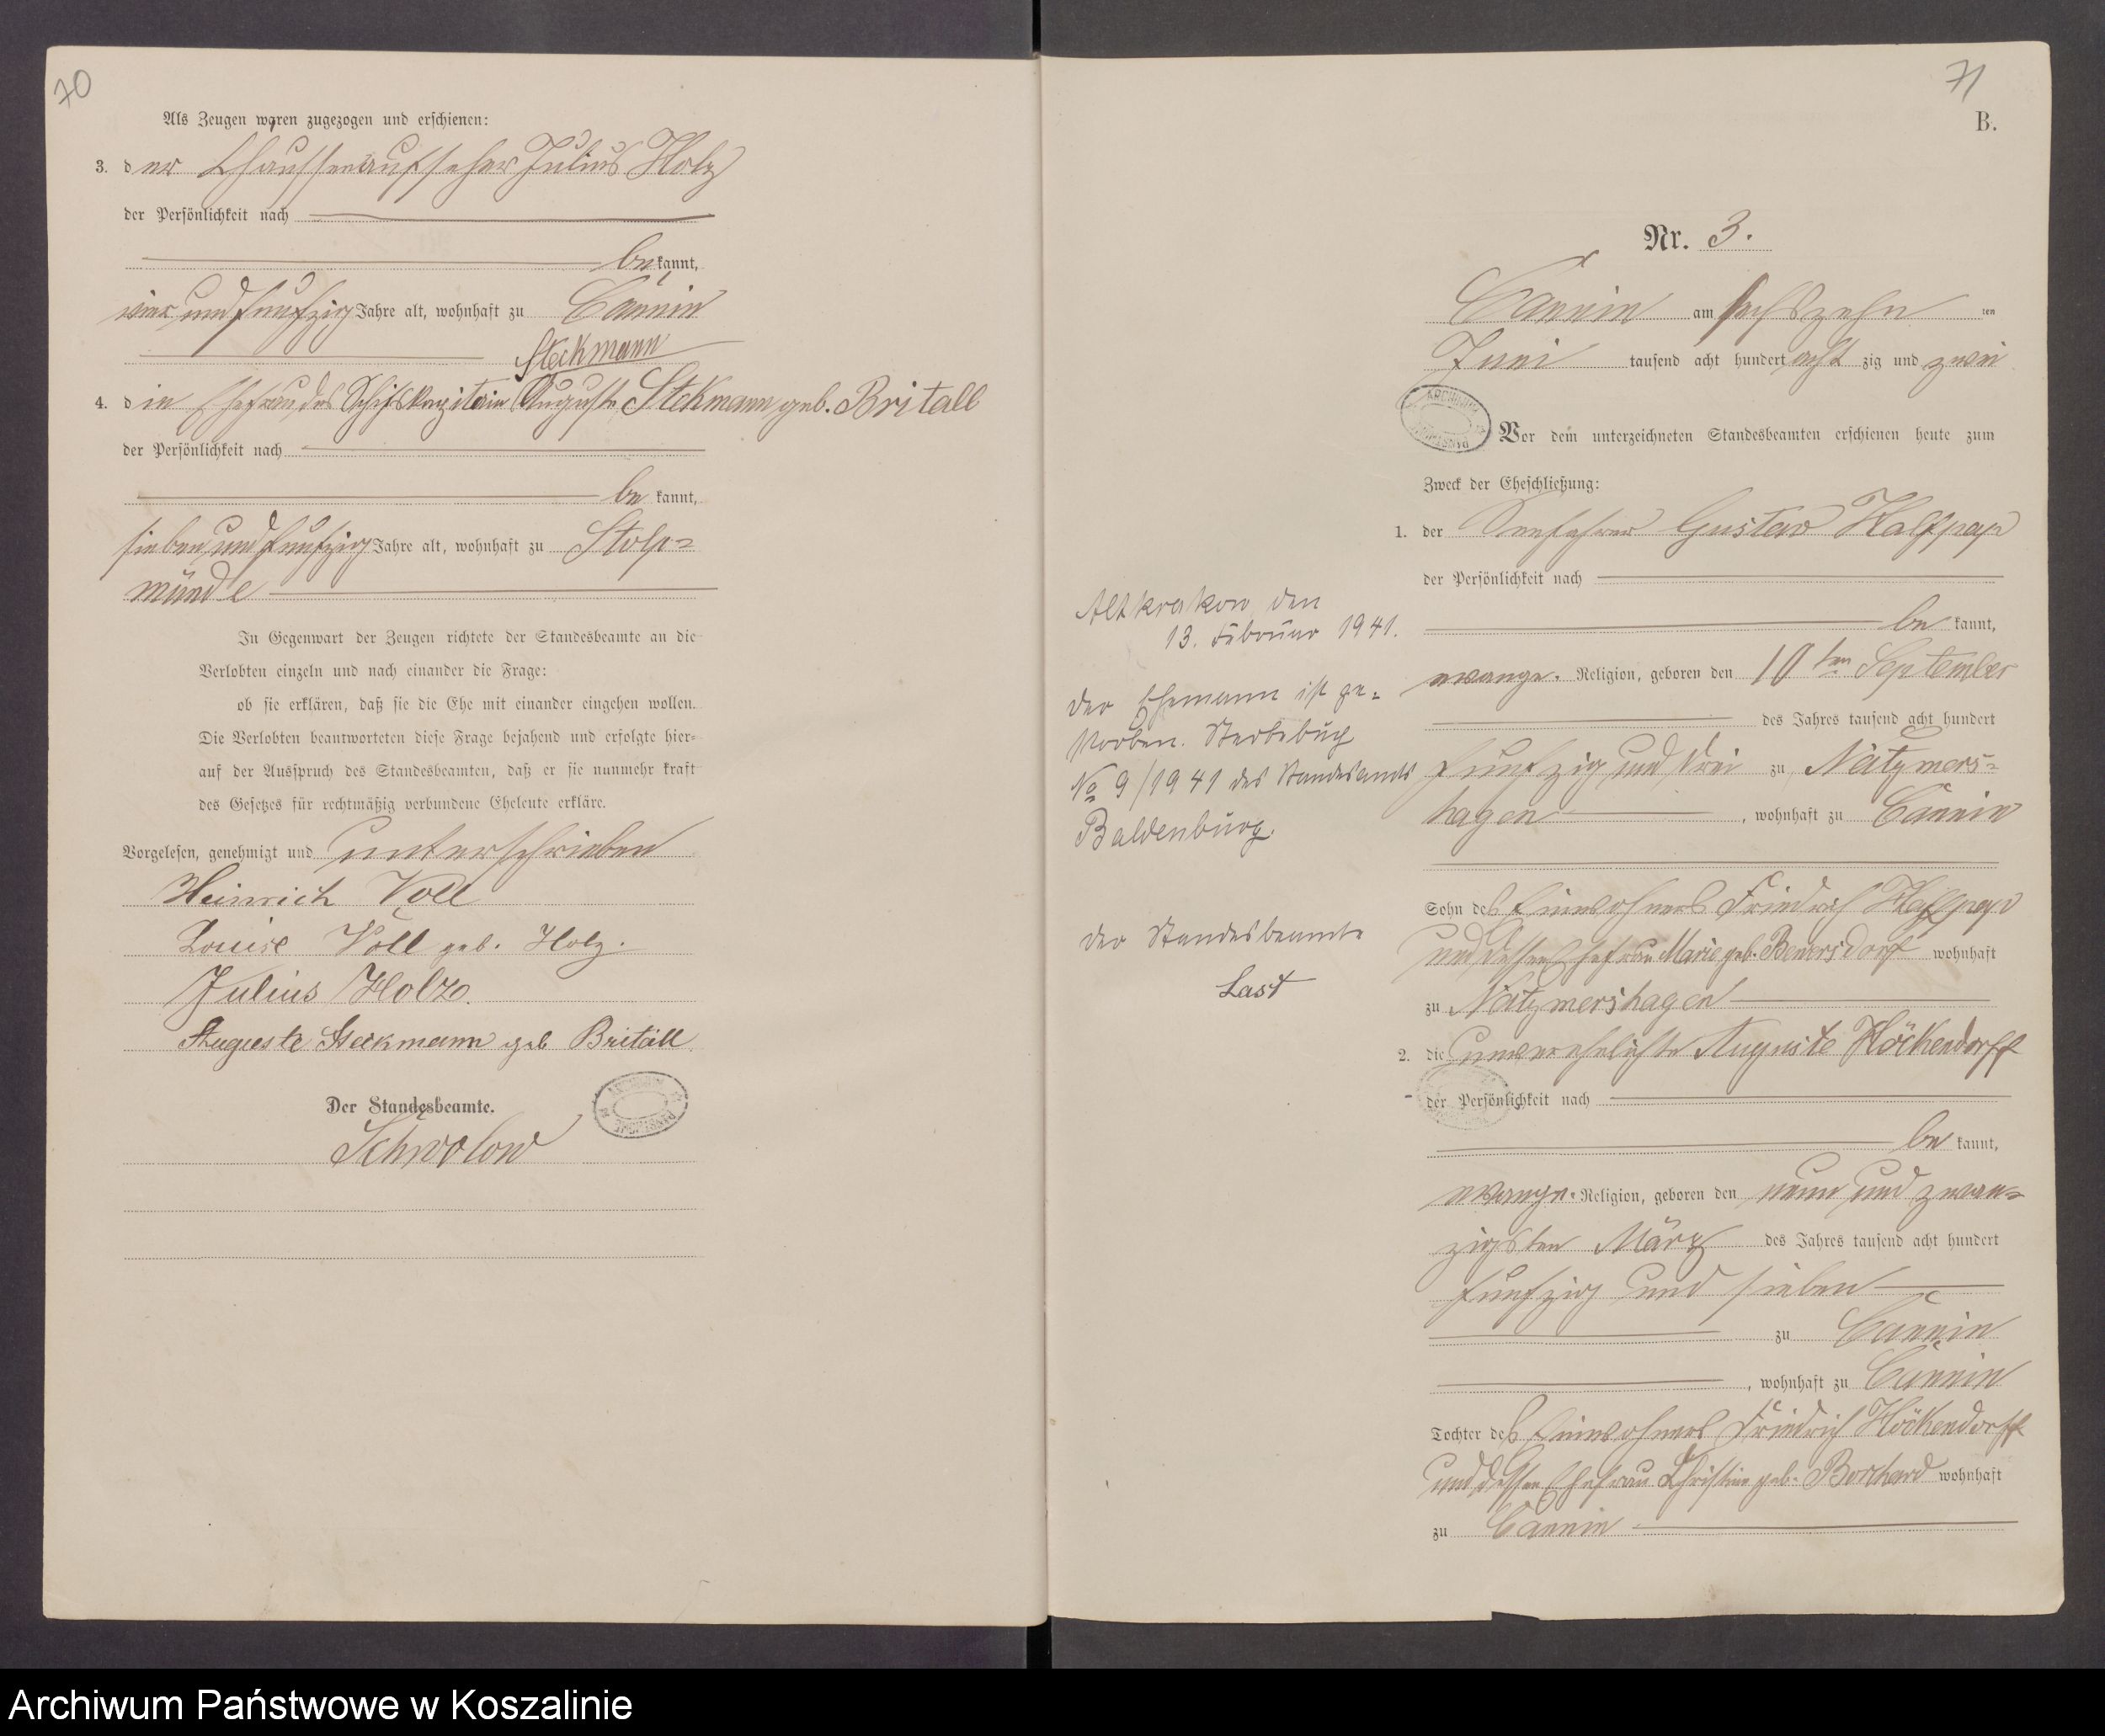 70
Als Zeugen waren zugezogen und erschienen:
3. der Chausseeaufseher Julius Holz
der Persönlichkeit nach
bekannt,
vier und funfzig Jahre alt, wohnhaft zu Cannin
Steckmann
4. die Ehefrau des Schifskapitain Auguste Stekmann geb. Britall
der Persönlichkeit nach
be kannt,
sieben und funfzig Jahre alt, wohnhaft zu Stolp=
münde
In Gegenwart der Zeugen richtete der Standesbeamte an die
Verlobten einzeln und nach einander die Frage:
ob sie erklären, daß sie die Ehe mit einander eingehen wollen.
Die Verlobten beantworteten diese Frage bejahend und erfolgte hier=
auf der Ausspruch des Standesbeamten, daß er sie nunmehr kraft
des Gesetzes für rechtmäßig verbundene Eheleute erkläre.
Vorgelesen, genehmigt und unterschrieben
Heinrich Voll
Louise Voll geb. Holz.
Julius Holz.
Auguste Steckmann geb Britall
Der Standesbeamte.
Schwolow
71
B.
Nr. 3.
Cannin am sechszehn ten
Juni tausend acht hundert acht zig und zwei
Vor dem unterzeichneten Standesbeamten erschienen heute zum
Zweck der Eheschließung:
1. der Seefahrer Gustav Halfpap
der Persönlichkeit nach
be kannt,
evange. Religion, geboren den 10ten September
des Jahres tausend acht hundert
funfzig und drei zu Natzmers=
hagen, wohnhaft zu Cannin
Sohn des Einwohners Friedrich Halfpap
und dessen Ehefrau Marie geb. Bewersdorf wohnhaft
zu Natzmershagen
2. die unverehelichte Auguste Höckendorff
der Persönlichkeit nach
be kannt,
evange. Religion, geboren den neun und zwan=
zigsten März des Jahres tausend acht hundert
funfzig und sieben
zu Cannin
, wohnhaft zu Cannin
Tochter des Einwohners Friedrich Höckendorff
und dessen Ehefrau Christine geb. Borchard wohnhaft
zu Cannin
Altkrakow den
13. Februar 1941.
Der Ehemann ist ge=
storben. Sterbebuch
No 9/1941 des Standesamts
Baldenburg.
Der Standesbeamte
Last
ARCHIWUM
Archiwum Państwowe w Koszalinie